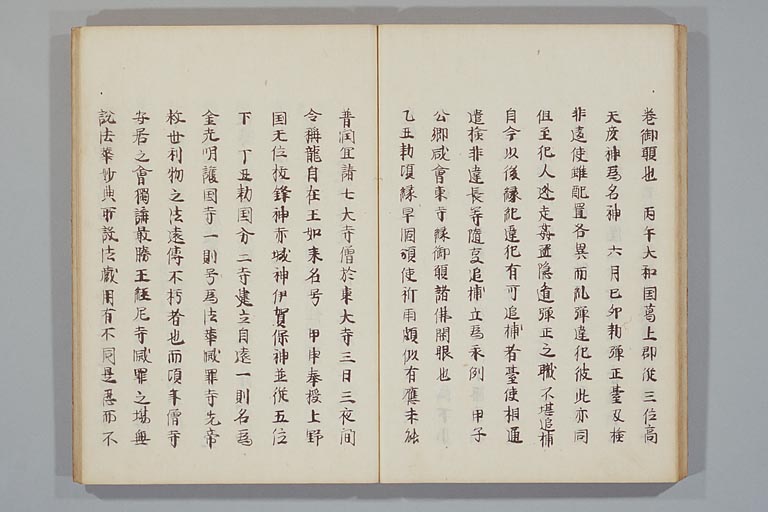 卷御願也　丙午大和国葛上郡從三位高
天彦神爲名神　六月己卯勅彈正臺及檢
非違使雖配置各異而乱彈違犯彼此亦同
但至犯人逃走姧盗隱遁彈正之職不堪追捕
自今以後緣糺違犯有可追捕者臺使相通
遣檢非違長等隨変追捕立爲永例　甲子
公卿咸會東寺緣御願諸佛開眼也
乙丑勅頃緣旱涸頒使祈雨頗似有應未能
普潤宜請七大寺僧於東大寺三日三夜間
令稱龍自在王如来名号　甲申奉授上野
国无位抜鋒神赤城神伊賀保神並從五位
下　丁丑勅国分二寺建立自遠一則名爲
金光明護国寺一則号爲法華滅罪寺先帝
救世利物之法遠傳不朽者也而項年僧寺
安居之會獨講最勝王經尼寺滅罪之場無
說法華妙典耶設法蔵用有不同是忍而不